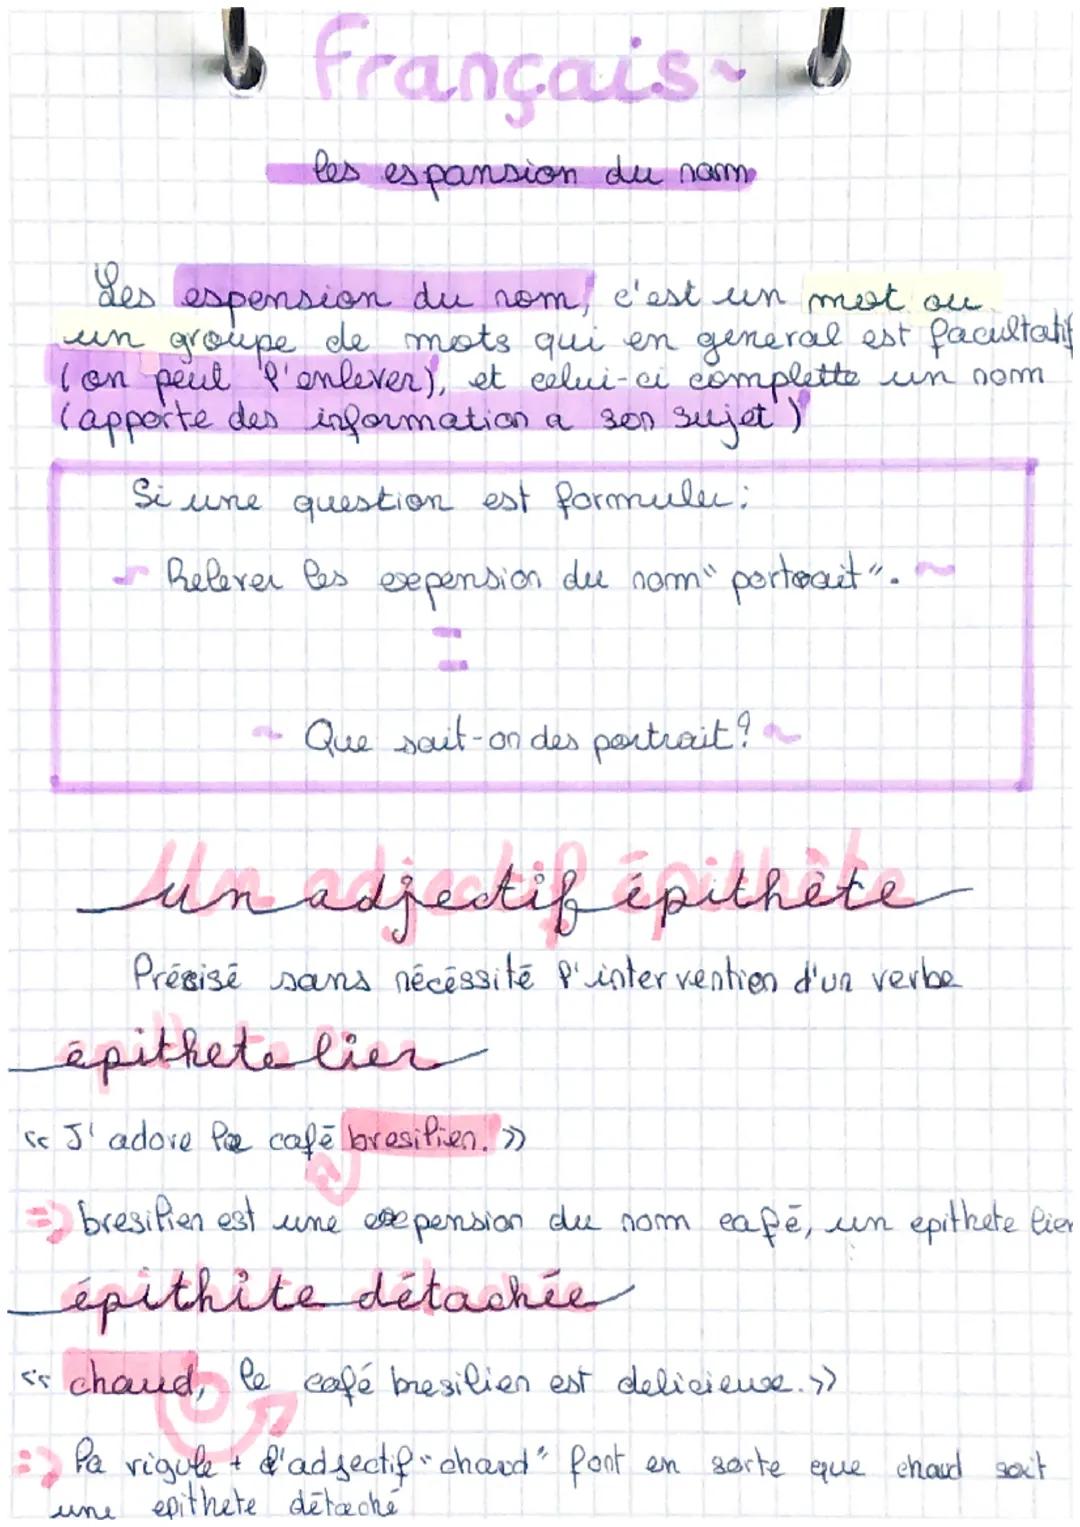 français~
les espansion du nom
Les espension du nom, c'est un mot ou
un groupe de mots qui en general est facultatif
(on peut l'enlever), et celui-ci complette un nom
(apporte des information a son sujet)
Si une question est formuler:
~ Relever les expension du nom "portrait". ~
=
~ Que sait-on des portrait? ~
Un adjectif épithète
Précisé sans nécéssité l'intervention d'un verbe
épithete lier
« J'adore le café bresilien. »
=> bresilien est une expension du nom café, un epithete lier
épithète détachée
« chaud, le café bresilien est delicieux. »
=> la vigule + l'adjectif "chaud" font en sorte que chaud soit
une epithete détaché